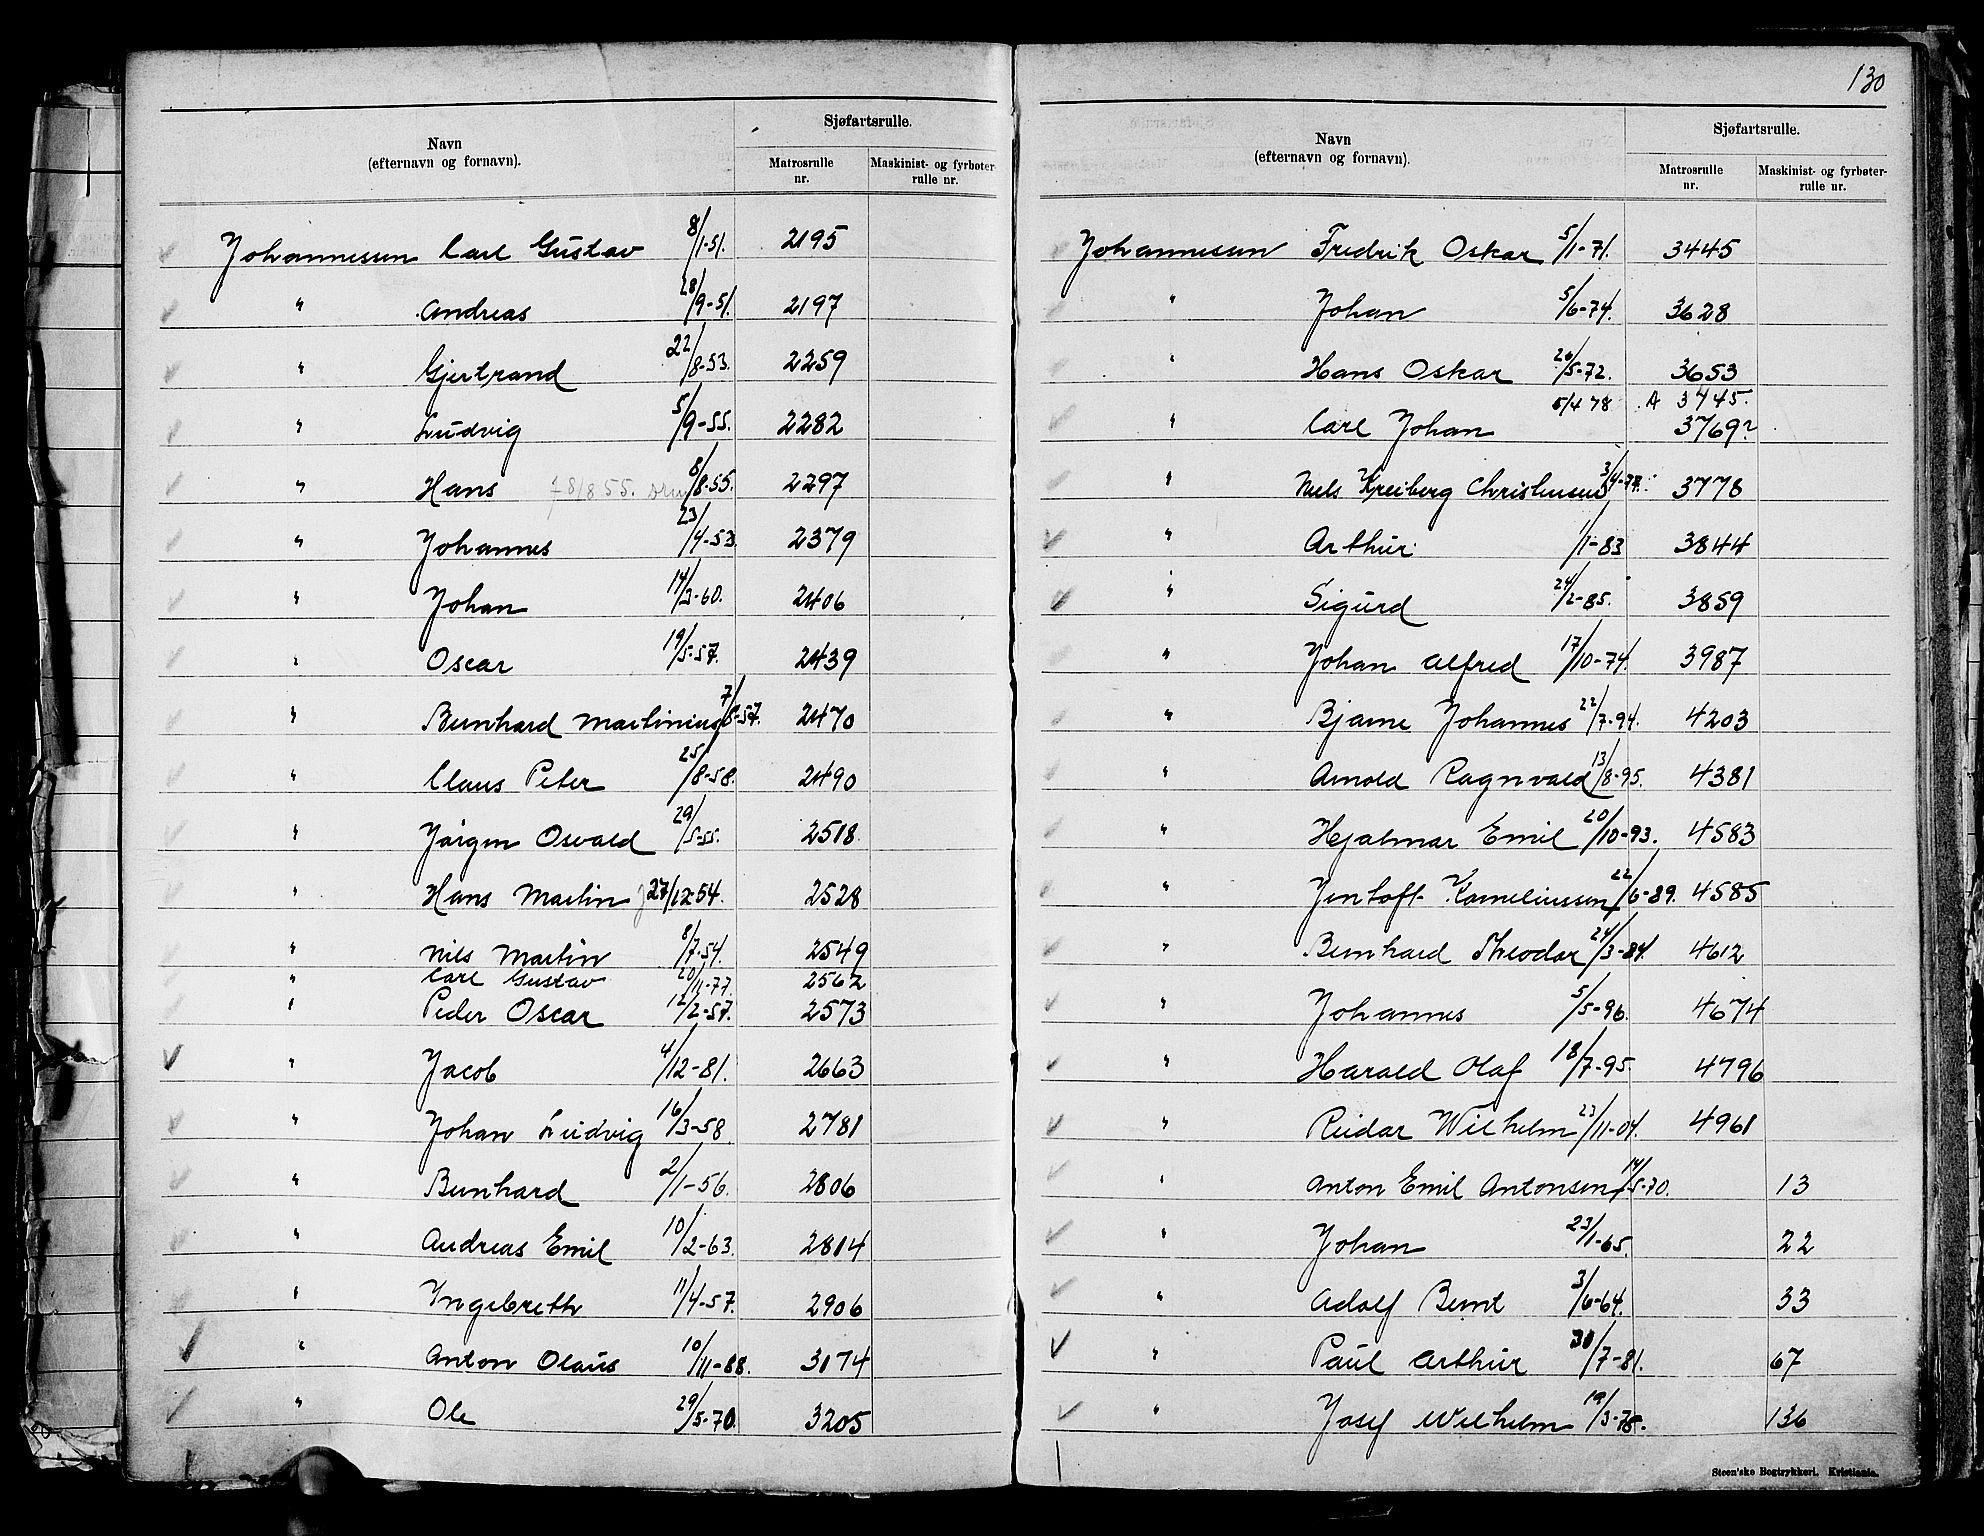 130
Navn
(efternavn og fornavn).
Sjøfartsrulle.
Matrosrulle nr.
Maskinist- og fyrbøter-rulle nr.
Johannessen Carl Gustav 8/1-51. 2195
" Andreas 28/9-51. 2197
" Gjertrand 22/8-53. 2259
" Ludvig 5/9-55. 2282
" Hans f 8/8 55. 8/8-55. 2297
" Johannes 23/4-53. 2379
" Johan 14/3-60. 2406
" Oscar 19/5-57. 2439
" Bernhard Martinius 7/8-57. 2470
" Claus Peter 25/8-58. 2490
" Jörgen Osvald 29/5-55. 2518
" Hans Martin 27/12-54. 2528
" Nils Martin 8/7-54. 2549
" Carl Gustav 20/11-77. 2562
" Peder Oscar 12/2-57. 2573
" Jacob 4/12-81. 2663
" Johan Ludvig 16/3-58. 2781
" Bernhard 2/1-56. 2806
" Andreas Emil 10/2-63. 2814
" Ingebreth 11/4-57. 2906
" Anton Olaus 10/11-88. 3174
" Ole 29/5-70. 3205
Navn
(efternavn og fornavn).
Sjøfartsrulle.
Matrosrulle nr.
Maskinist- og fyrbøter-rulle nr.
Johannessen Fredrik Oskar 5/1-71. 3445
" Johan 5/6-74. 3628
" Hans Oskar 20/5-72. 3653
5/4 78 A 3745.
" Carl Johan 3769?
" Niels Kreiberg Christensen 3/4-77. 3778
" Arthur /1-83 3844
" Sigurd 24/2-85. 3859
" Johan Alfred 17/10-74. 3987
" Bjarne Johannes 22/7-94. 4203
" Arnold Ragnvald 13/8-95. 4381
" Hjalmar Emil 20/10-93. 4583
" Jentoft Korneliussen 22/6-89. 4585
" Bernhard Theodor 24/3-84. 4612
" Johannes 5/5-96. 4674
" Harald Olaf 18/7-95. 4796
" Reidar Wilhelm 23/11-04. 4961
" Anton Emil Antonsen 14/5-70. 13
" Johan 23/1-65. 22
" Adolf Bernt 3/6-64. 33
" Paul Arthur 30/7-81. 67
" Josef Wilhelm 19/3-75. 136
Steen'ske Bogtrykkeri. Kristiania.